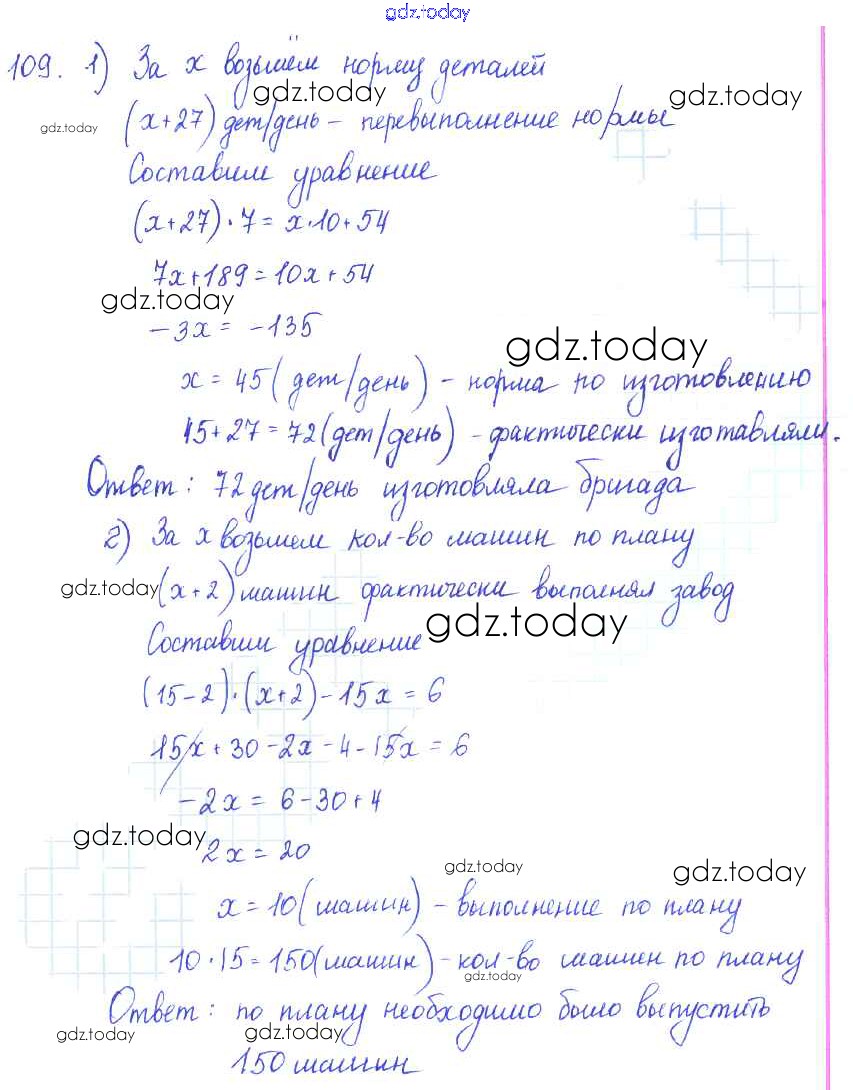 gdz.today
109. 1) За x возьмём норму деталей
gdz.today gdz.today
gdz.today (x+27) дет/день – перевыполнение нормы
Составим уравнение
(x+27)·7=x·10+54
7x+189=10x+54
gdz.today
-3x = -135
gdz.today
x = 45 (дет/день) – норма по изготовлению
45+27=72(дет/день) – фактически изготавляли.
Ответ: 72 дет/день изготовляла бригада
2) За x возьмем кол-во машин по плану
gdz.today (x+2) машин фактически выполнял завод
gdz.today
Составим уравнение
(15-2)·(x+2)-15x=6
15x+30-2x-4-15x=6
-2x=6-30+4
gdz.today
2x=20
gdz.today gdz.today
x=10(машин) – выполнение по плану
10·15=150(машин) – кол-во машин по плану
gdz.today
Ответ: по плану необходимо было выпустить
gdz.today gdz.today
150 машин